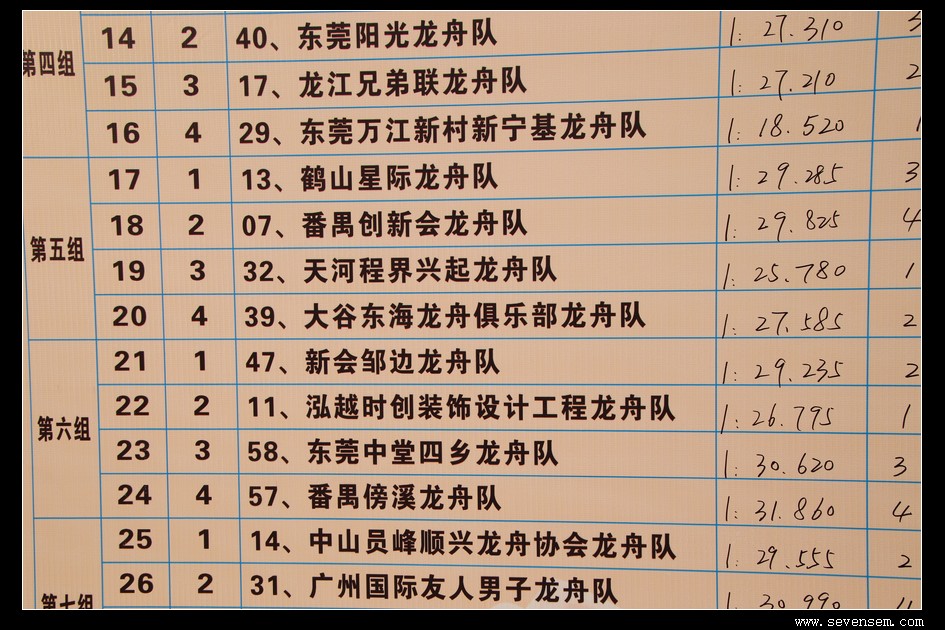 第四组 14 2 40、东莞阳光龙舟队 1:27.310 3
15 3 17、龙江兄弟联龙舟队 1:27.210 2
16 4 29、东莞万江新村新宁基龙舟队 1:18.520 1
第五组 17 1 13、鹤山星际龙舟队 1:29.285 3
18 2 07、番禺创新会龙舟队 1:29.825 4
19 3 32、天河程界兴起龙舟队 1:25.780 1
20 4 39、大谷东海龙舟俱乐部龙舟队 1:27.585 2
第六组 21 1 47、新会邹边龙舟队 1:29.235 2
22 2 11、泓越时创装饰设计工程龙舟队 1:26.795 1
23 3 58、东莞中堂四乡龙舟队 1:30.620 3
24 4 57、番禺傍溪龙舟队 1:31.860 4
第七组 25 1 14、中山员峰顺兴龙舟协会龙舟队 1:29.555 2
26 2 31、广州国际友人男子龙舟队 1:30.990
www.sevensem.com